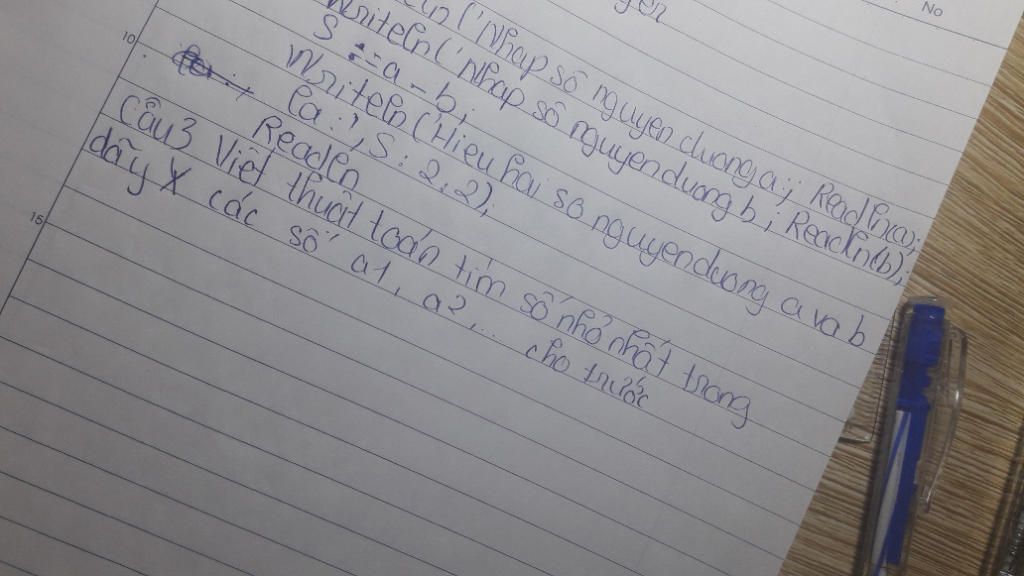 No
yen
eln ('Nhap số nguyen duong a ; Readln(a);
Writeln ('Nhap số nguyen duong b ; Readln(b);
S := a - b;
Writeln ('Hieu hai so nguyen duong a va b
la : ', S : 2, 2);
Readln
Câu 3 Viết thuật toán tìm số nhỏ nhất trong
dãy X các số a1, a2, ... cho trước
10
15